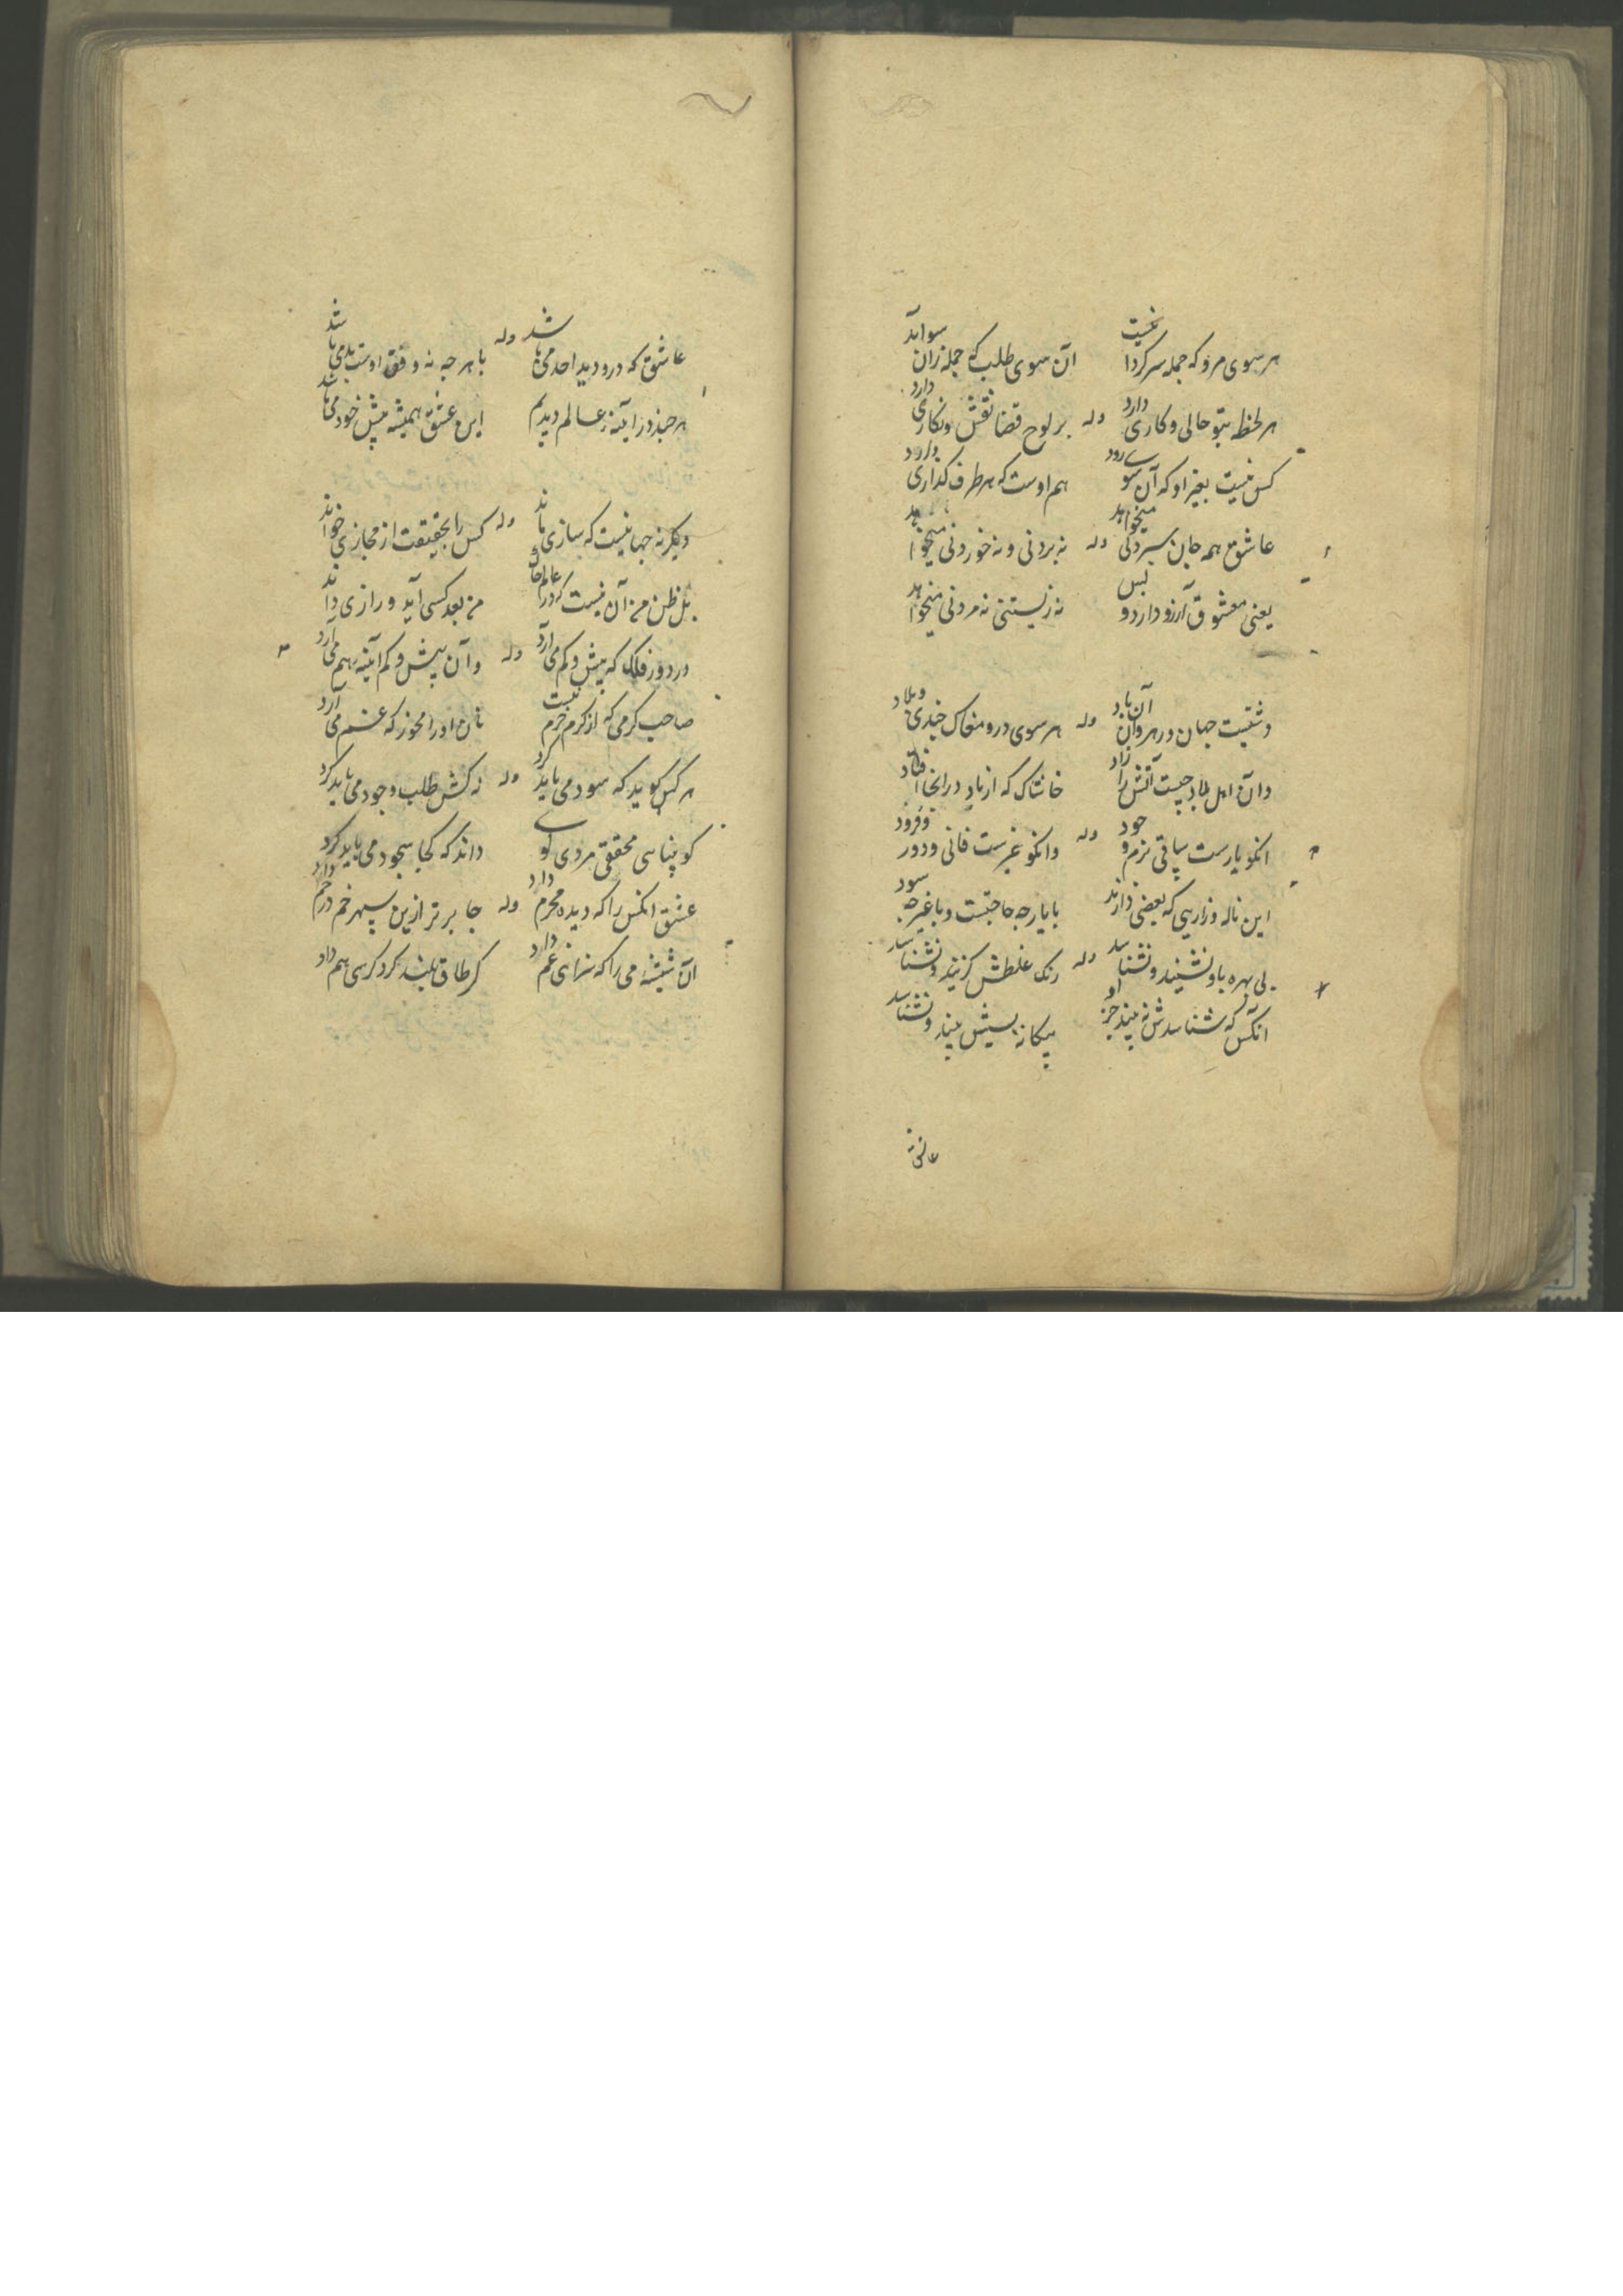 هر سوی مرو که جمله سرگردانیست
آن سوی طلب که جمله زان سو آید
هر لحظه بتو حالی و کاری دارد
وله
بر لوح قضا نقش و نکاری دارد
کس نیست بغیر او که آن سو رود
هم اوست که هر طرف کذاری دارد
عاشق همه جان سپردنی میخواهد
وله
نه بردنی و نه خوردنی میخواهد
یعنی معشوق آرزو دارد و بس
نه زیستنی نه مردنی میخواهد
دشتیست جهان و رهروان آن باد
وله
هر سوی درو مغاک چندی
وان اهل بلاد چیست آتش را زاد
خاشاک که از باد در انجا افتاد
انکو یارست باقی بزم و
وله
وانکو غیرست فانی و دور
این ناله و زاریی که بعضی دارند
با یار چه حاجتست و با غیر چه سود
بی بهره باو نشیند و نشناسد
وله
رنک غلطش کزیند و نشناسد
آنکس که شناسدش نه بیند جز او
بیکانه بسیش بیند و نشناسد
عاشق که درو دید احد می باشد
وله
با هر چه نه وفق اوست بد می باشد
هر چند در آینه عالم دیدیم
این عشق همیشه پیش خود می باشد
دیکر نه جهانیست که سازی ماند
وله
کس را بحقیقت از مجازی خواند
بل ظن من آن نیست که در عالم خاک
من بعد کسی آید و رازی داند
در دور فلک که بیش و کم می آرد
وله
وآن بیش و کم آینه هم می آرد
صاحب کرمی که از کرم خرم نیست
نان او را مخور که غم می آرد
هر کس کوید که سود می باید کرد
وله
نه کش طلب وجود می باید کرد
کو پیناسی محققی مردی کوی
داند که کجا سجود می باید کرد
عشق انکس را که دیده محرم دارد
وله
جا برتر ازین سپهر خم در خم دارد
آن شیشه می را که نه غم دارد
کر طاق بلند کرد کرسی هم داد